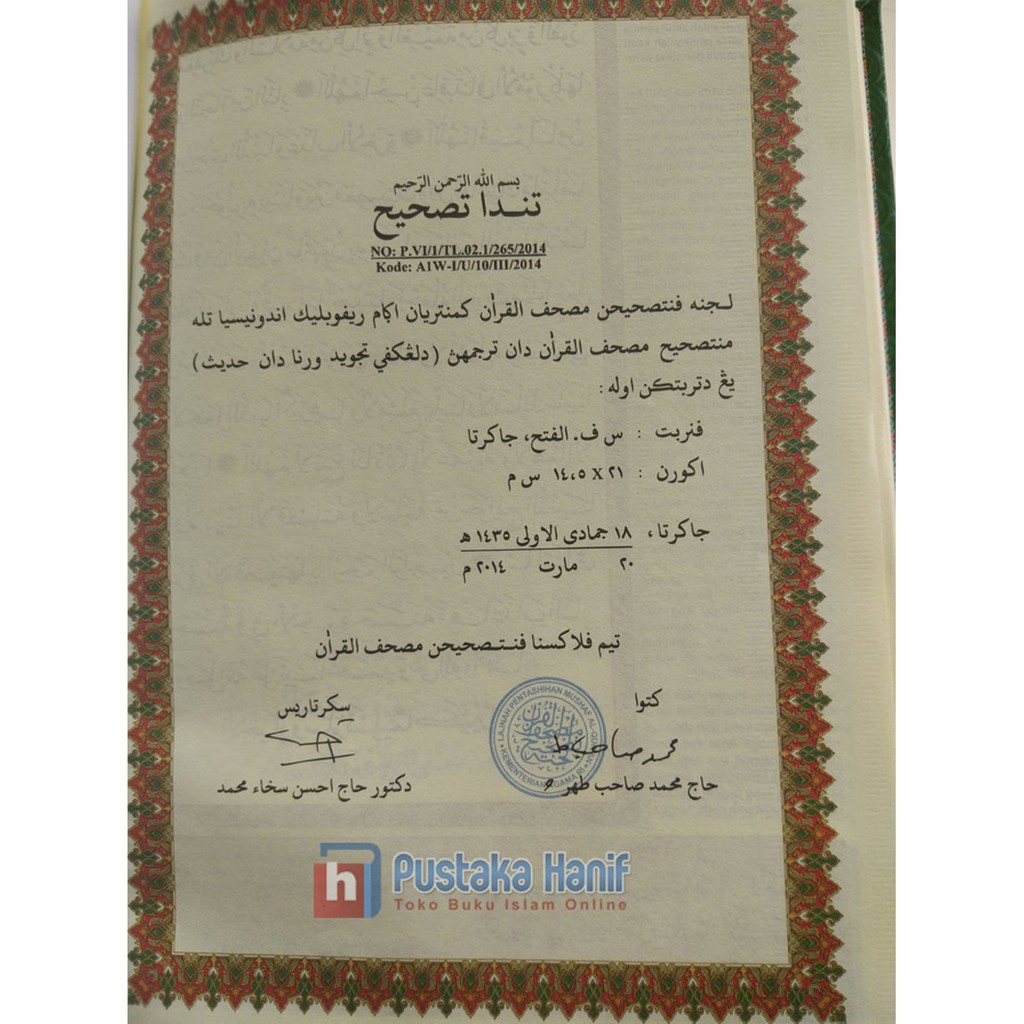 بسم الله الرّحمن الرّحيم
تندا تصحيح
NO: P.VI/1/TL.02.1/265/2014
Kode: A1W-I/U/10/III/2014
لجنه فنتصحيحن مصحف القرأن كمنتريان اڬام ريفوبليك اندونيسيا تله
منتصحيح مصحف القرأن دان ترجمهن (دلڠكفي تجويد ورنا دان حديث)
يڠ دتربتكن اوله :
فنربت : س ف. الفتح، جاكرتا
اكورن : ٢١ x ١٤،٥ س م
جاكرتا، ١٨ جمادى الاولى ١٤٣٥ ﻫ
٢٠ مارت ٢٠١٤ م
تيم فلاكسنا فنتصحيحن مصحف القرأن
كتوا
سكرتاريس
LAJNAH PENTASHIHAN MUSHAF AL-QUR'AN
KEMENTERIAN AGAMA RI
حاج محمد صاحب طهر
دكتور حاج احسن سخاء محمد
h Pustaka Hanif
Toko Buku Islam Online